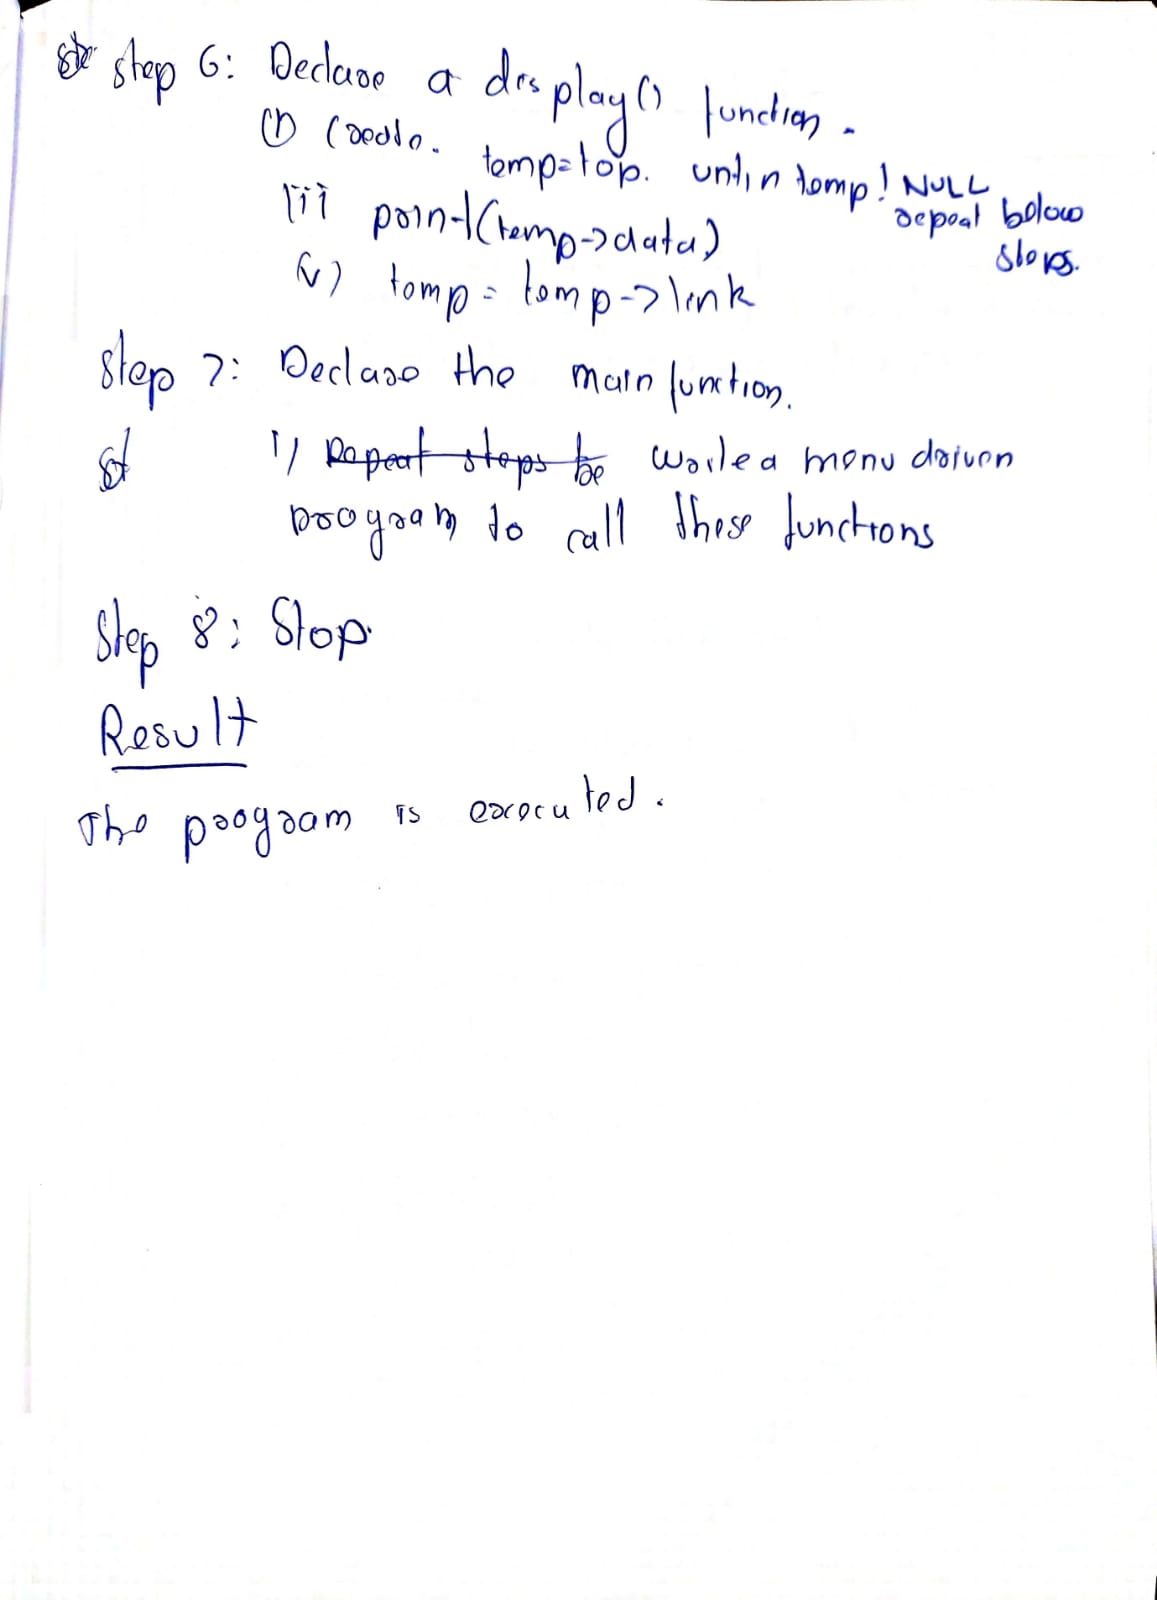 Step 6: Declare a display() function.
(i) Create. temp=top. until temp! NULL
repeat below
steps.
iii print(temp->data)
iv) temp = temp->link
Step 7: Declare the main function.
i) Repeat steps be write a menu driven
program to call these functions
Step 8: Stop.
Result
The program is executed.